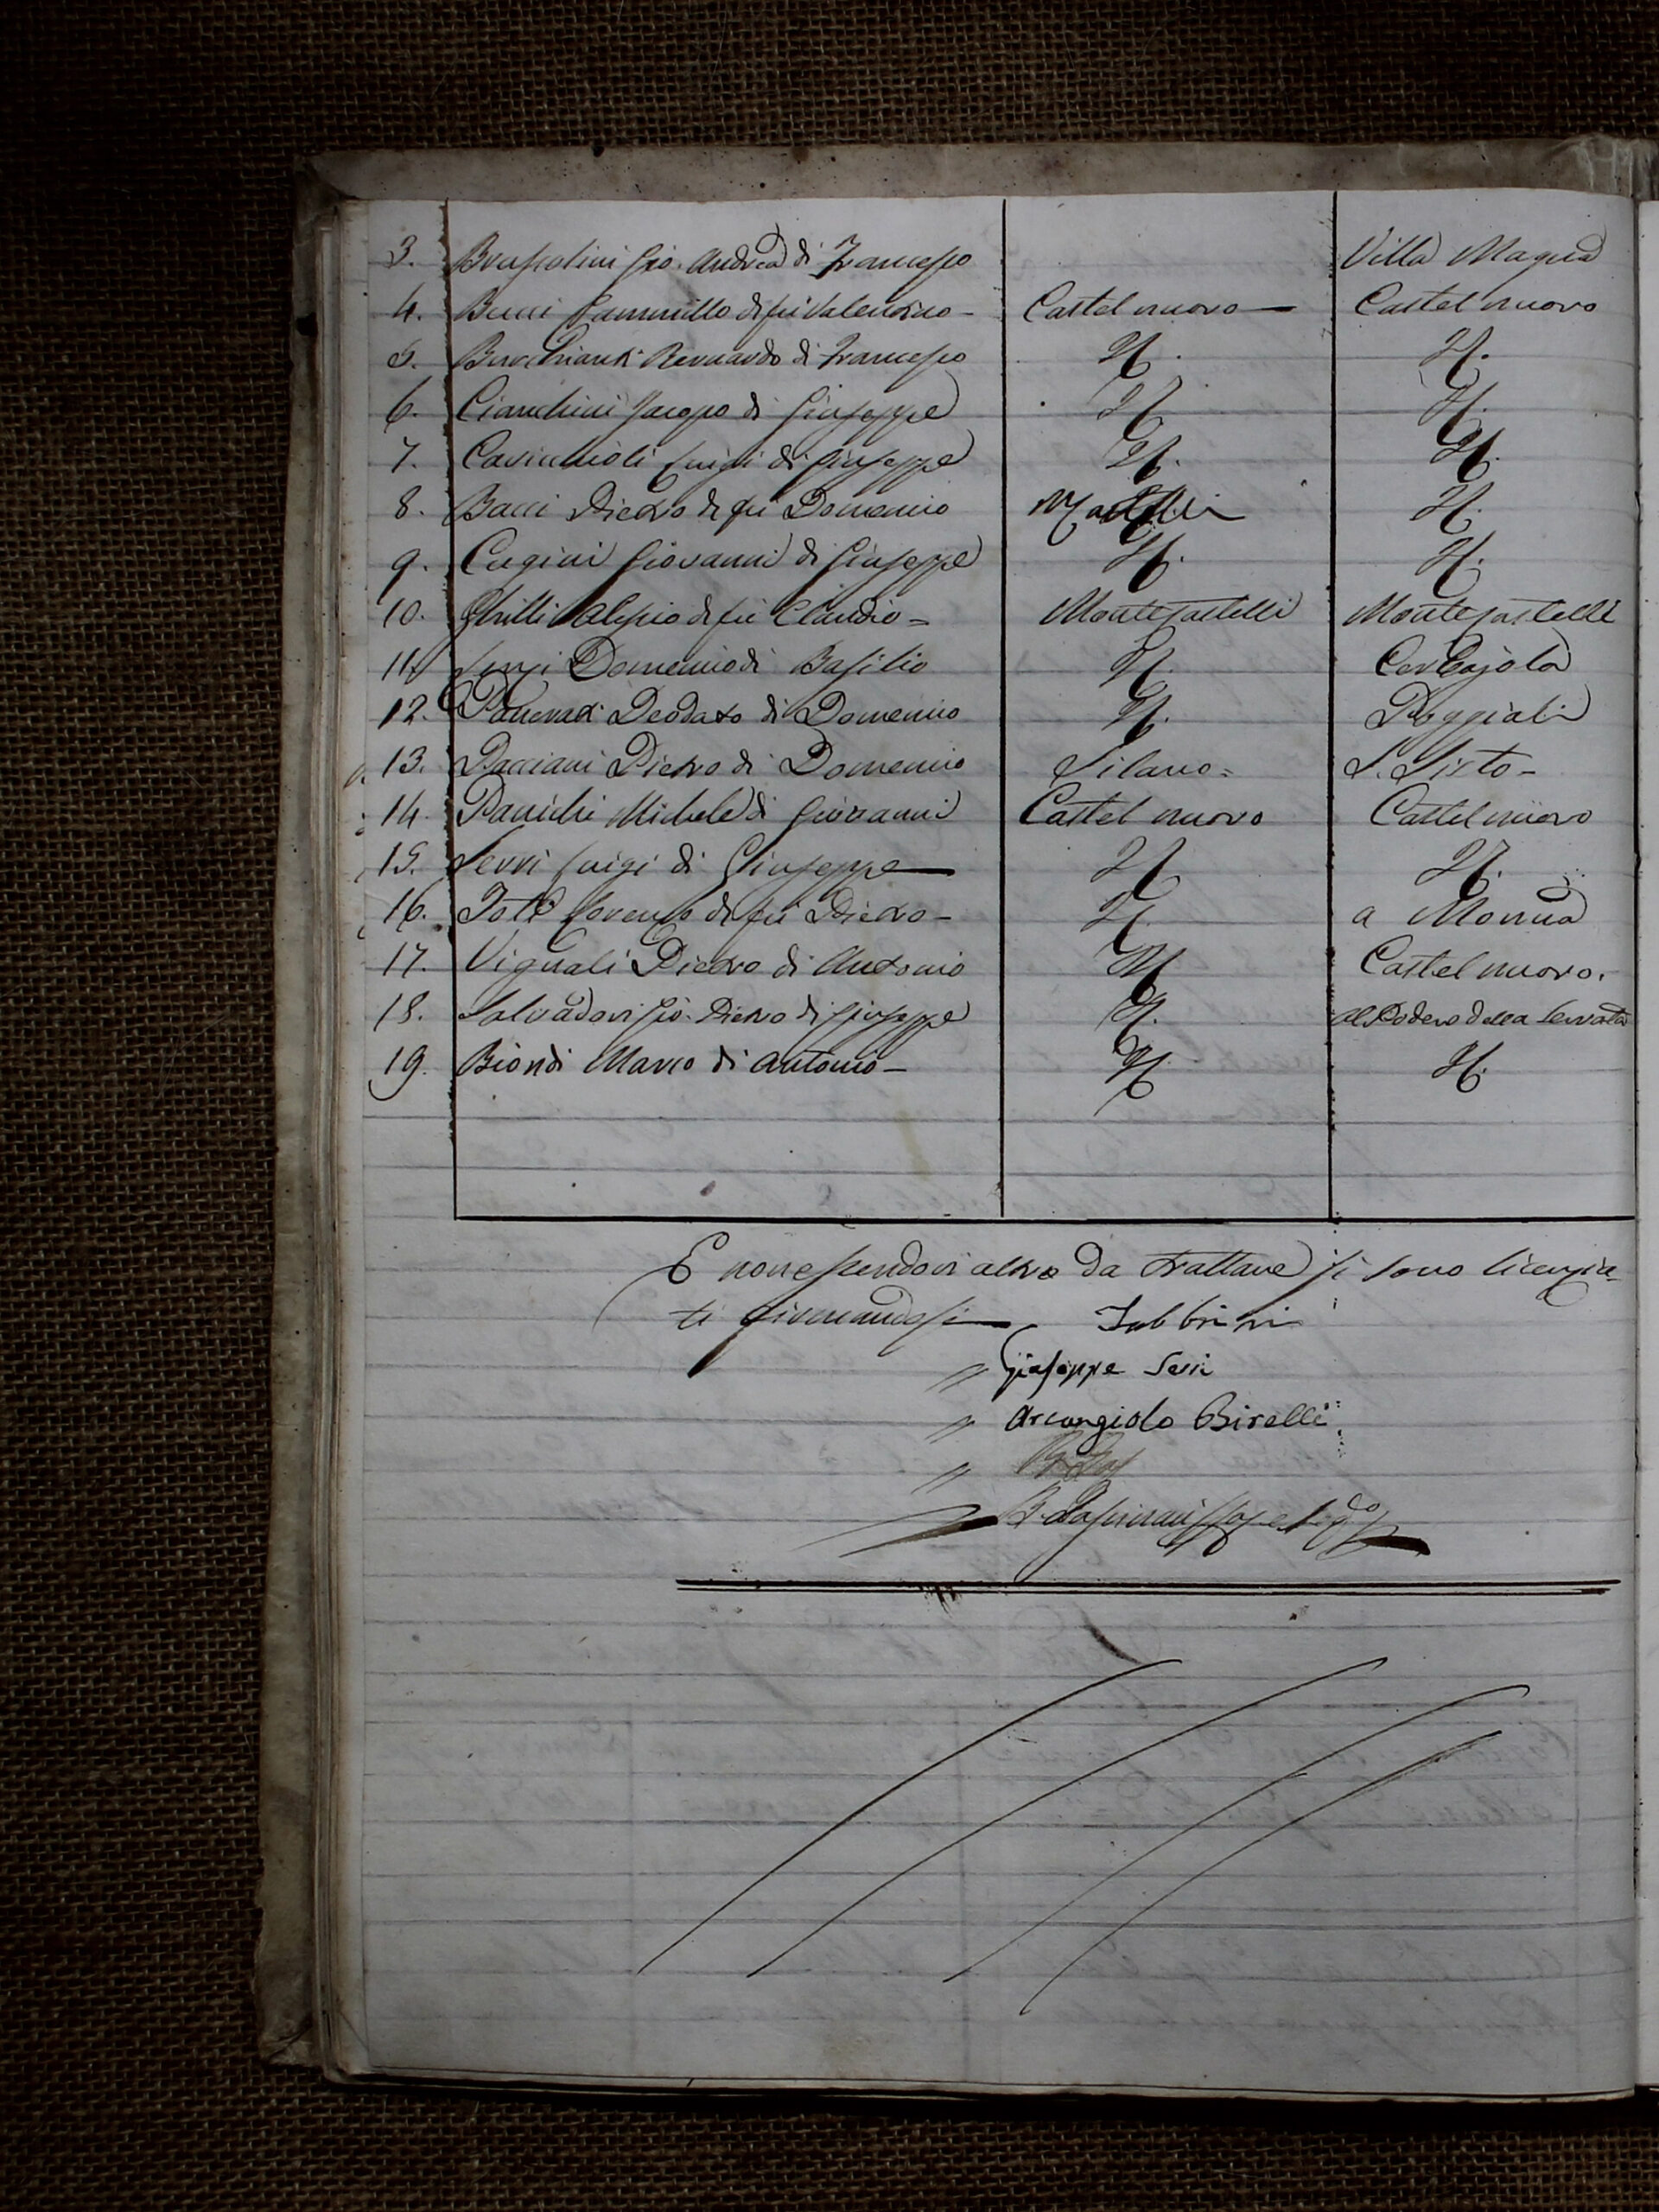 3. Brussolini Gio. Andrea di Francesco Villa Magna
4. Bucci Cammillo di fu Valentino - Castel nuovo — Castel nuovo
5. Bernardo di Francesco
6. Cianchini Jacopo di Giuseppe
7. Cavicchioli Luigi di Giuseppe
8. Bacci Pietro di fu Domenico
9. Cugini Giovanni di Giuseppe
10. Ghilli Alessio di fu Claudio = Montecastelli Montecastelli
11. Domenico di Basilio Cerbajola
12. Deodato di Domenico Poggiali
13. Pacciani Pietro di Domenico Silano = S. Sisto -
14. Panichi Michele di Giovanni Castel nuovo Castel nuovo
15. Serri Luigi di Giuseppe —
16. Toti Lorenzo di fu Pietro - a Monna
17. Vignali Pietro di Antonio Castel nuovo.
18. Salvadori Gio. Pietro di Giuseppe al Podere della Serrata
19. Biondi Marco di Antonio -
E non essendovi altro da trattare si sono licenzia-
ti firmandosi — Fabbrini
" Giuseppe Serri
" Arcangiolo Birelli
"